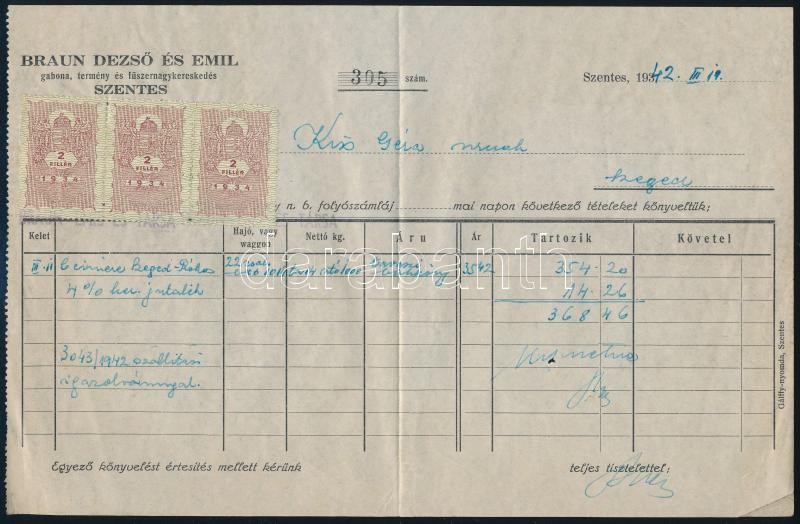 BRAUN DEZSŐ ÉS EMIL
gabona, termény és fűszernagykereskedés
SZENTES
305 szám.
Szentes, 1942. III 19.
2 2 2
FILLÉR FILLÉR FILLÉR
1934 1934 1934
Kiss Géza urnak
Szeged
n. b. folyószámláj mai napon következő tételeket könyveltük;
Kelet Hajó, vagy waggon Nettó kg. Áru Ár Tartozik Követel
III. 11 címére Szeged-Rókus 22 35.42 354.20
4% ker. jutalék 14.26
368.46
3043/1942 szállítási
igazolvánnyal.
Egyező könyvelést értesítés mellett kérünk teljes tisztelettel;
Gálffy-nyomda, Szentes
darabanth